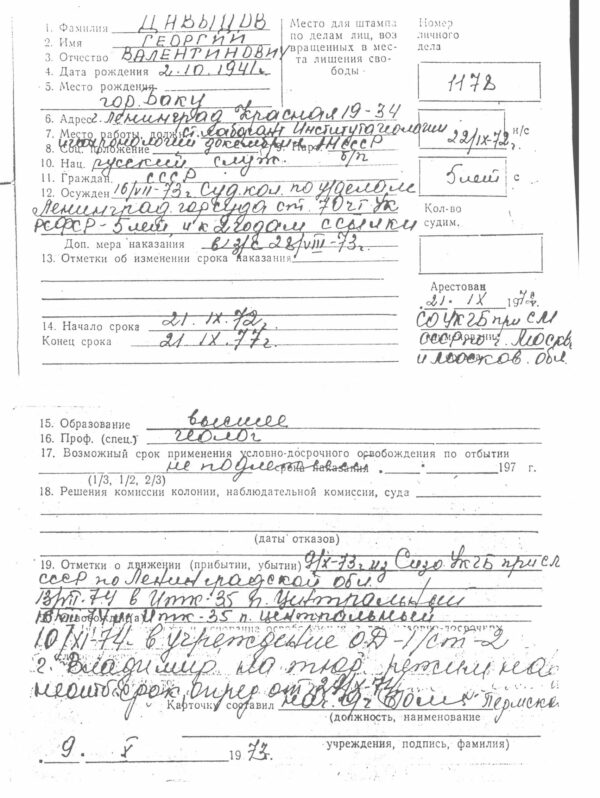 1. Фамилия ДАВЫДОВ
2. Имя ГЕОРГИЙ
3. Отчество ВАЛЕНТИНОВИЧ
4. Дата рождения 2.10.1941 г.
5. Место рождения
гор. Баку
6. Адрес г. Ленинград Красная 19-34
7. Место работы, должн. ст. лаборант Института геологии
и геохронологии докембрия АН СССР
8. Соц. положение 9. Парт. б/п
10. Нац. русский служ.
11. Граждан. СССР
12. Осужден 16/VII-73 г. Суд. кол. по у/делам
Ленинград. горсуда ст. 70 ч I УК
РСФСР - 5 лет, и к 2 годам ссылки
Доп. мера наказания в з/с 28/VIII-73 г.
13. Отметки об изменении срока наказания
14. Начало срока 21.IX.72 г.
Конец срока 21.IX.77 г.
Место для штампа
по делам лиц, воз
вращенных в мес-
та лишения сво-
боды
Номер
личного
дела
1178
22/IX-72 г. н/с
5 лет с
Кол-во
судим.
Арестован
21. IX 1972 г.
СО УКГБ при СМ
СССР по г. Москве
и Москов. обл.
15. Образование высшее
16. Проф. (спец.) геолог
17. Возможный срок применения условно-досрочного освобождения по отбытии
не подлежит срока наказания . . 197 г.
(1/3, 1/2, 2/3)
18. Решения комиссии колонии, наблюдательной комиссии, суда
(даты отказов)
19. Отметки о движении (прибытии, убытии) 9/X-73 г. из Сизо УКГБ при СМ
СССР по Ленинградской обл.
13/VII.74 в ИТК-35 п. Центральный
ИТК-35 п. Центральный
10/XI-74. в учреждение ОД-1/ст-2
г. Владимир на тюр. режим на
неотб. срок опред. от 29/X-74
Карточку составил нач. Пермска
(должность, наименование
учреждения, подпись, фамилия)
. 9 . X 1973 г.